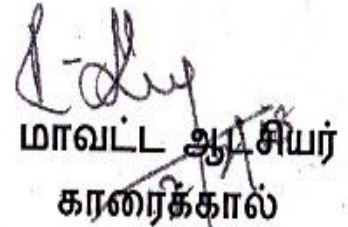 மாவட்ட ஆட்சியர்
காரைக்கால்